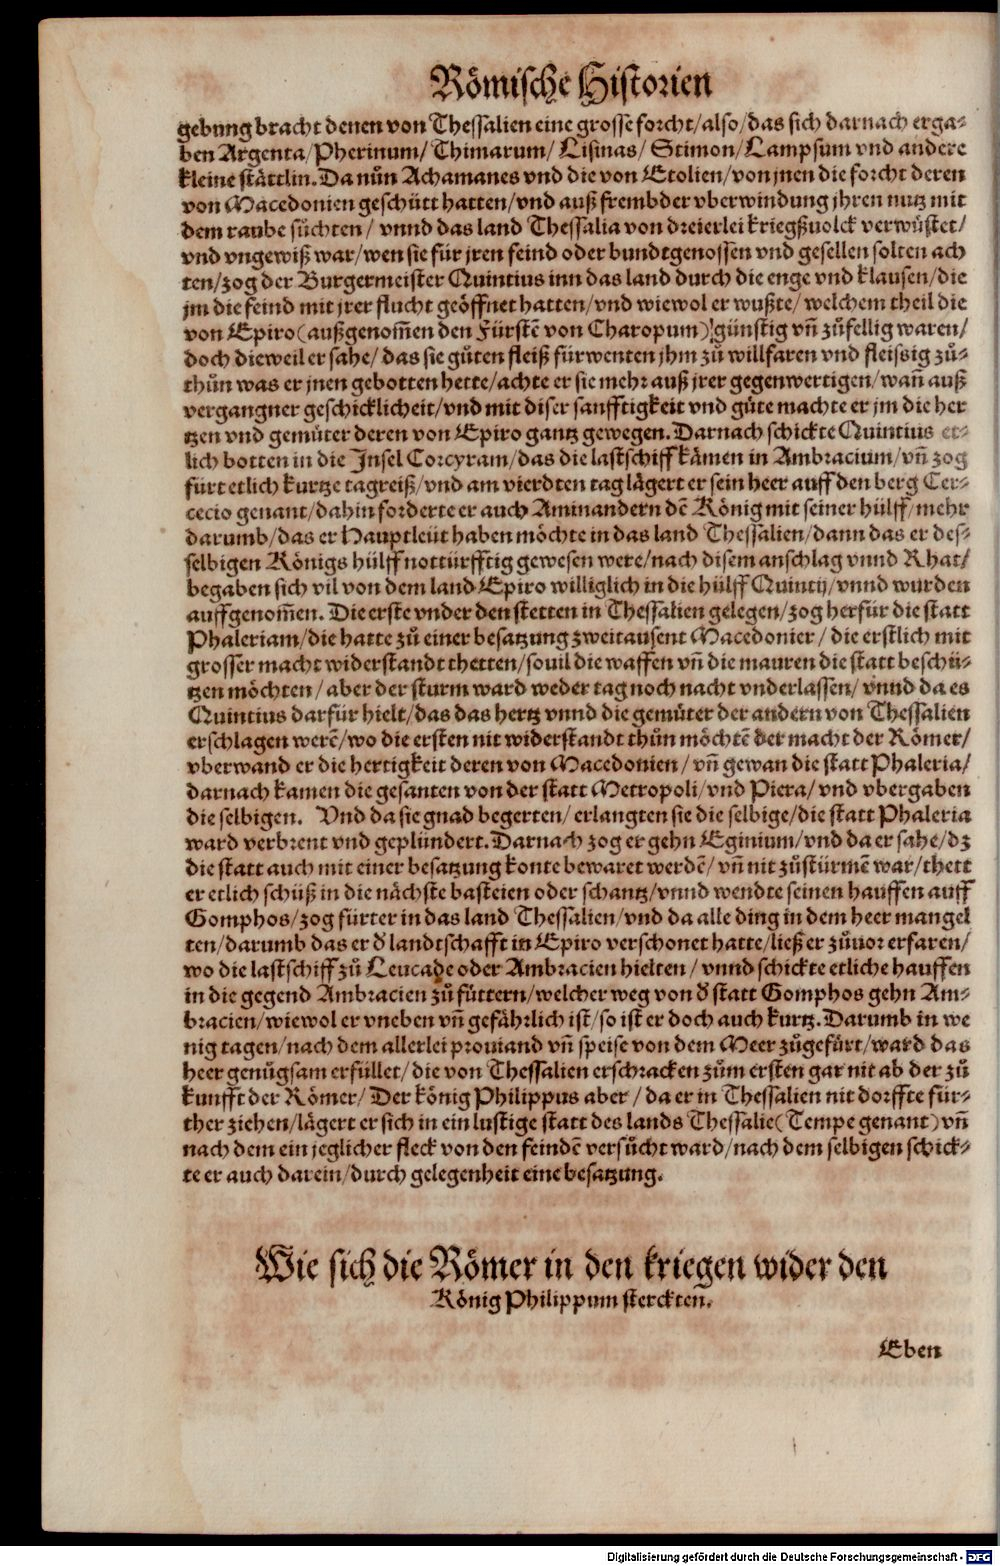 Römische Historien
gebung bracht denen von Thessalien eine grosse forcht/also/das sich darnach erga-
ben Argenta/Pherinum/ Thimarum/ Lisinas/ Stimon/Lampsum vnd andere
kleine stättlin. Da nůn Achamanes vnd die von Etolien/von jnen die forcht deren
von Macedonien geschütt hatten/vnd auß frembder vberwindung jhren nutz mit
dem raube sůchten/ vnnd das land Thessalia von dreierlei kriegßuolck verwüstet/
vnd vngewiß war/wen sie für jren feind oder bundtgenossen vnd gesellen solten ach
ten/zog der Burgermeister Quintius inn das land durch die enge vnd klausen/die
jm die feind mit jrer flucht geöffnet hatten/vnd wiewol er wußte/ welchem theil die
von Epiro(außgenom̃en den Fürstẽ von Charopum)günstig vñ zůfellig waren/
doch dieweil er sahe/ das sie gůten fleiß fürwenten jhm zů willfaren vnd fleissig zů-
thůn was er jnen gebotten hette/achte er sie mehr auß jrer gegenwertigen/wañ auß
vergangner geschicklicheit/vnd mit diser sanfftigkeit vnd güte machte er jm die her
tzen vnd gemüter deren von Epiro gantz gewegen. Darnach schickte Quintius et-
lich botten in die Insel Corcyram/das die lastschiff kämen in Ambracium/vñ zog
fürt etlich kurtze tagreiß/vnd am vierdten tag lägert er sein heer auff den berg Cer-
cecio genant/dahin forderte er auch Aminandern dẽ König mit seiner hülff/mehr
darumb/das er Hauptleüt haben möchte in das land Thessalien/dann das er des-
selbigen Königs hülff nottürfftig gewesen were/nach disem anschlag vnnd Rhat/
begaben sich vil von dem land Epiro williglich in die hülff Quintij/vnnd wurden
auffgenom̃en. Die erste vnder den stetten in Thessalien gelegen/zog herfür die statt
Phaleriam/die hatte zů einer besatzung zweitausent Macedonier/ die erstlich mit
grosser macht widerstandt thetten/souil die waffen vñ die mauren die statt beschü-
tzen möchten/ aber der sturm ward weder tag noch nacht vnderlassen/ vnnd da es
Quintius darfür hielt/das das hertz vnnd die gemüter der andern von Thessalien
erschlagen werẽ/wo die ersten nit widerstandt thůn möchtẽ der macht der Römer/
vberwand er die hertigkeit deren von Macedonien/ vñ gewan die statt Phaleria/
darnach kamen die gesanten von der statt Metropoli/vnd Piera/ vnd vbergaben
die selbigen. Vnd da sie gnad begerten/ erlangten sie die selbige/die statt Phaleria
ward verbrent vnd geplündert. Darnach zog er gehn Eginium/vnd da er sahe/dz
die statt auch mit einer besatzung konte bewaret werdẽ/ vñ nit zůstürmẽ war/thett
er etlich schüß in die nächste basteien oder schantz/vnnd wendte seinen hauffen auff
Gomphos/zog fürter in das land Thessalien/vnd da alle ding in dem heer mangel
ten/darumb das er d̕ landtschafft in Epiro verschonet hatte/ließ er zůuor erfaren/
wo die lastschiff zů Leucade oder Ambracien hielten/ vnnd schickte etliche hauffen
in die gegend Ambracien zů füttern/welcher weg von d̕ statt Gomphos gehn Am-
bracien/wiewol er vneben vñ gefährlich ist/so ist er doch auch kurtz. Darumb in we
nig tagen/nach dem allerlei prouiand vñ speise von dem Meer zůgefürt/ward das
heer genůgsam erfüllet/die von Thessalien erschracken zům ersten gar nit ab der zů
kunfft der Römer/ Der könig Philippus aber/ da er in Thessalien nit dorffte für-
ther ziehen/lägert er sich in ein lustige statt des lands Thessalie(Tempe genant)vñ
nach dem ein jeglicher fleck von den feindẽ versůcht ward/nach dem selbigen schick-
te er auch darein/durch gelegenheit eine besatzung.
Wie sich die Römer in den kriegen wider den
König Philippum sterckten.
Eben
Digitalisierung gefördert durch die Deutsche Forschungsgemeinschaft - DFG